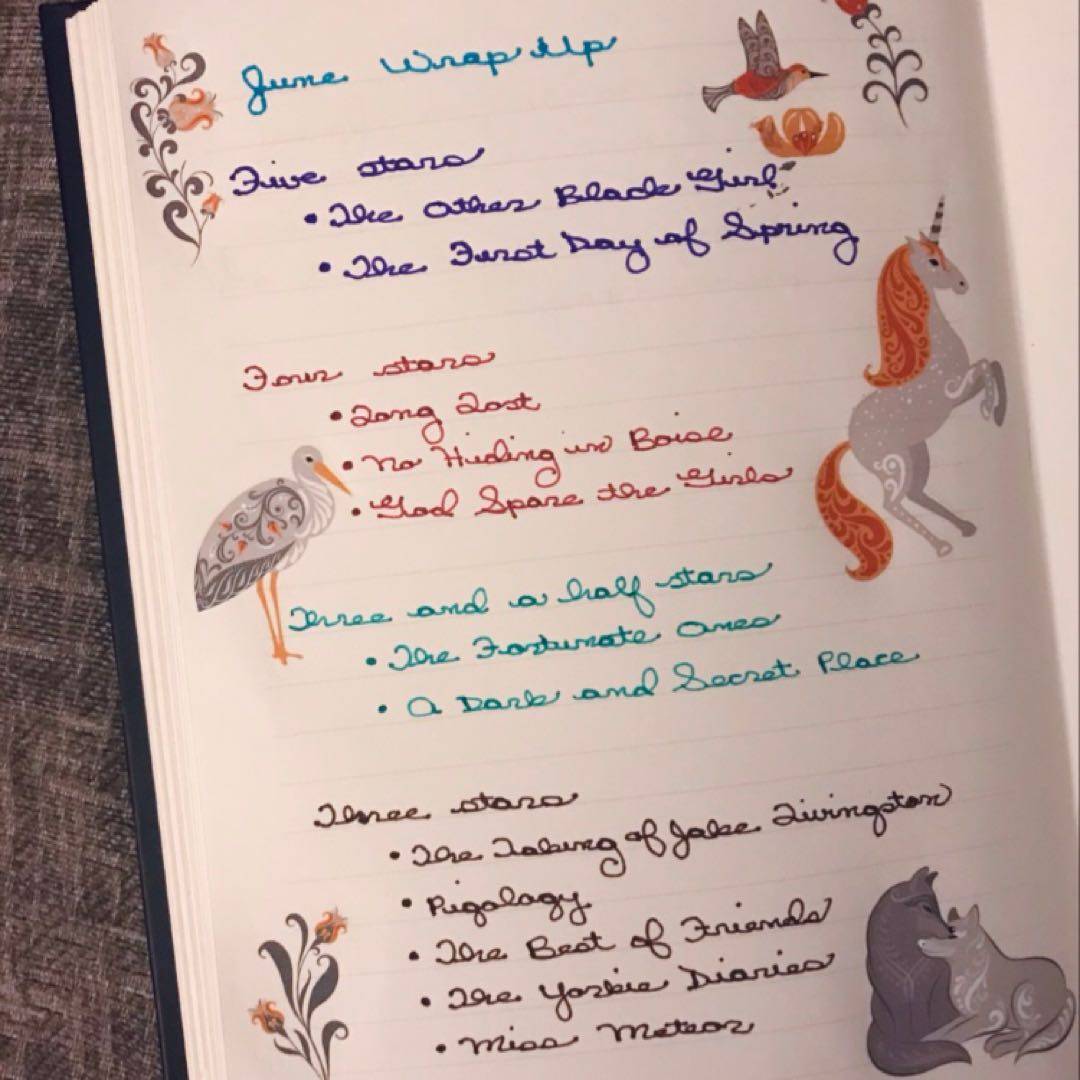 June Wrap Up
Five stars
• The Other Black Girl
• The First Day of Spring
Four stars
• Long Lost
• No Hiding in Boise
• God Spare the Girls
Three and a half stars
• The Fortunate Ones
• A Dark and Secret Place
Three stars
• The Taking of Jake Livingston
• Pigology
• The Best of Friends
• The Yorkie Diaries
• Miss Meteor